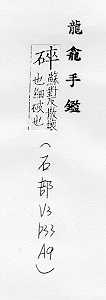 龍龕手鑑
碎
蘇對反散破
也細破也
(石部 V3
P33
A9)